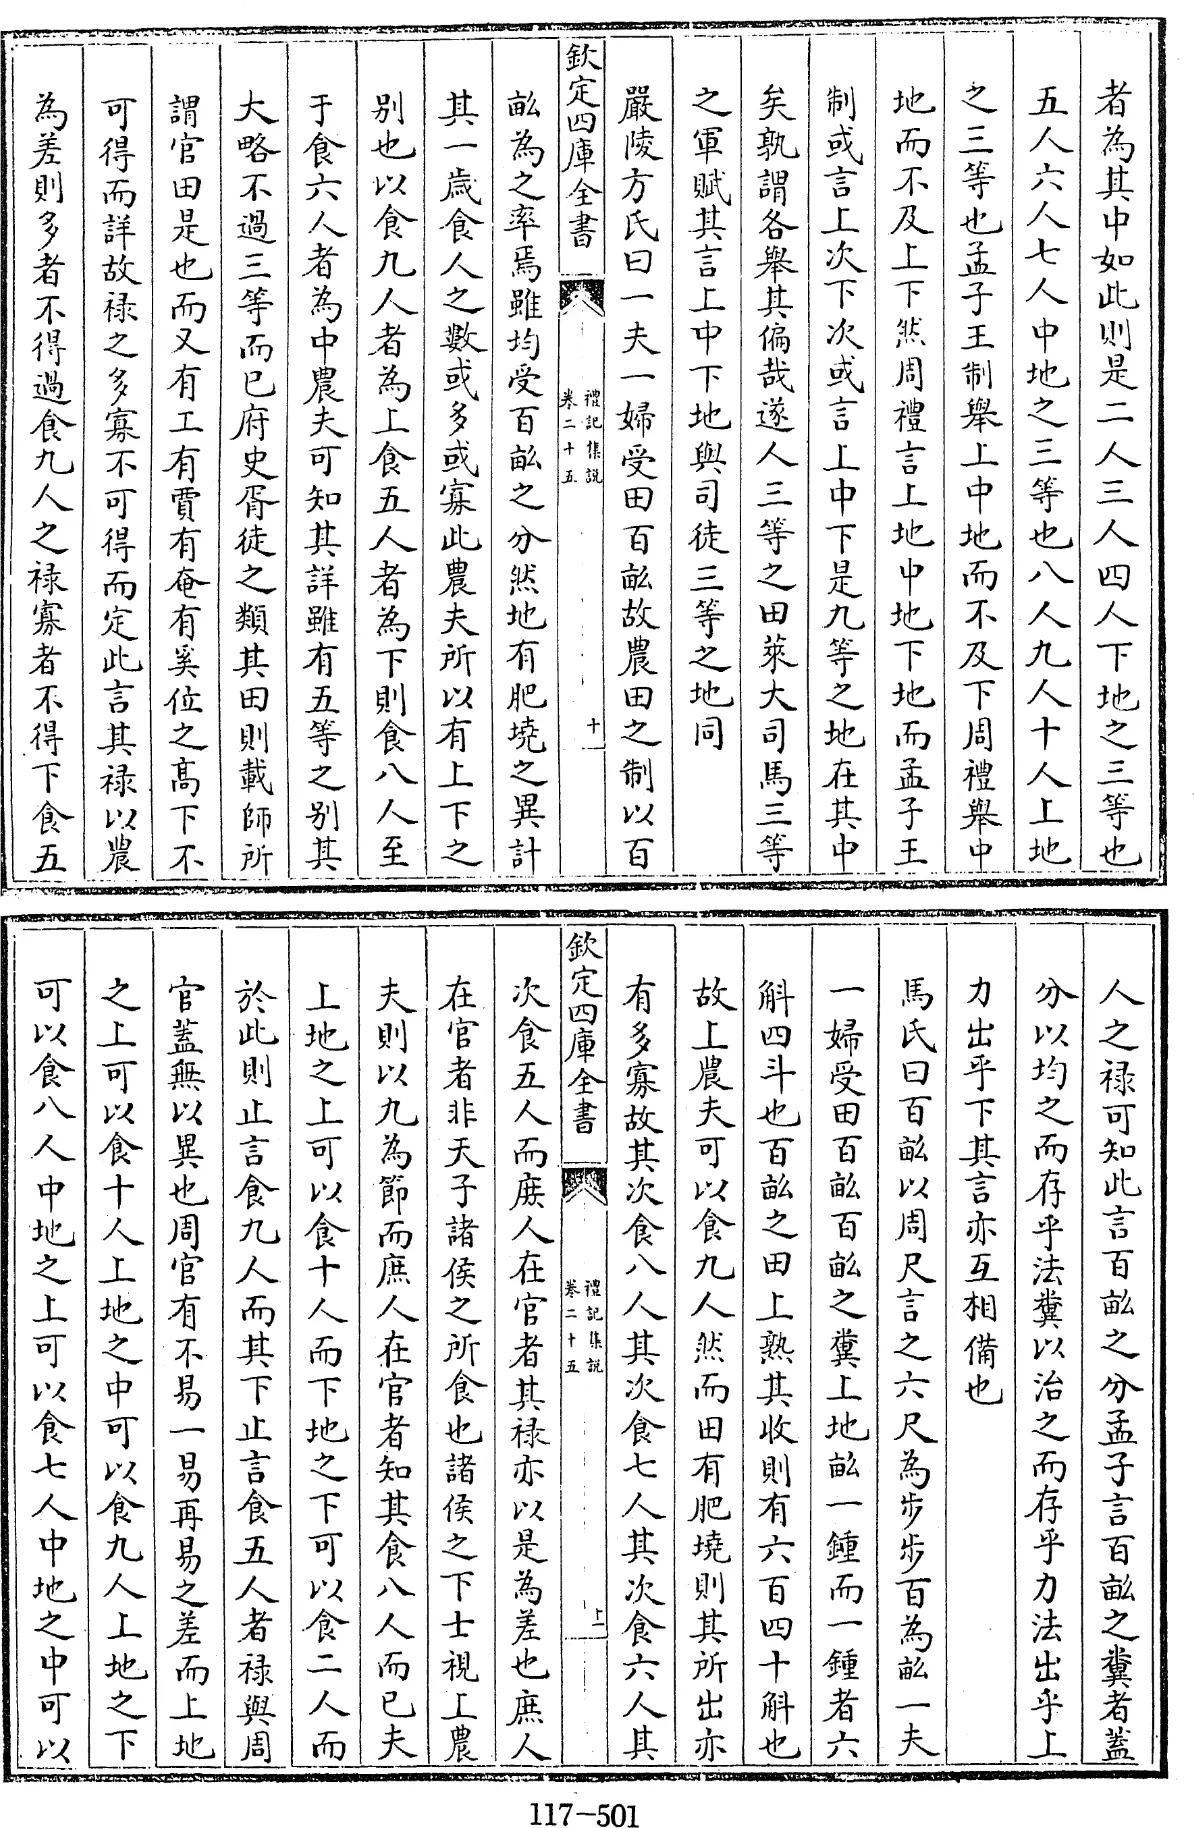 者為其中如此則是二人三人四人下地之三等也
五人六人七人中地之三等也八人九人十人上地
之三等也孟子王制舉上中地而不及下周禮舉中
地而不及上下然周禮言上地中地下地而孟子王
制或言上次下次或言上中下是九等之地在其中
矣孰謂各舉其偏哉遂人三等之田萊大司馬三等
之軍賦其言上中下地與司徒三等之地同
嚴陵方氏曰一夫一婦受田百畝故農田之制以百
欽定四庫全書
禮記集說
卷二十五
十
畝為之率焉雖均受百畝之分然地有肥墝之異計
其一歲食人之數或多或寡此農夫所以有上下之
別也以食九人者為上食五人者為下則食八人至
于食六人者為中農夫可知其詳雖有五等之別其
大略不過三等而已府史胥徒之類其田則載師所
謂官田是也而又有工有賈有奄有奚位之高下不
可得而詳故祿之多寡不可得而定此言其祿以農
為差則多者不得過食九人之祿寡者不得下食五
人之祿可知此言百畝之分孟子言百畝之糞者蓋
分以均之而存乎法糞以治之而存乎力法出乎上
力出乎下其言亦互相備也
馬氏曰百畝以周尺言之六尺為步步百為畝一夫
一婦受田百畝百畝之糞上地畝一鍾而一鍾者六
斛四斗也百畝之田上熟其收則有六百四十斛也
故上農夫可以食九人然而田有肥墝則其所出亦
有多寡故其次食八人其次食七人其次食六人其
欽定四庫全書
禮記集說
卷二十五
十一
次食五人而庶人在官者其祿亦以是為差也庶人
在官者非天子諸侯之所食也諸侯之下士視上農
夫則以九為節而庶人在官者知其食八人而已夫
上地之上可以食十人而下地之下可以食二人而
於此則止言食九人而其下止言食五人者祿與周
官蓋無以異也周官有不易一易再易之差而上地
之上可以食十人上地之中可以食九人上地之下
可以食八人中地之上可以食七人中地之中可以
117-501